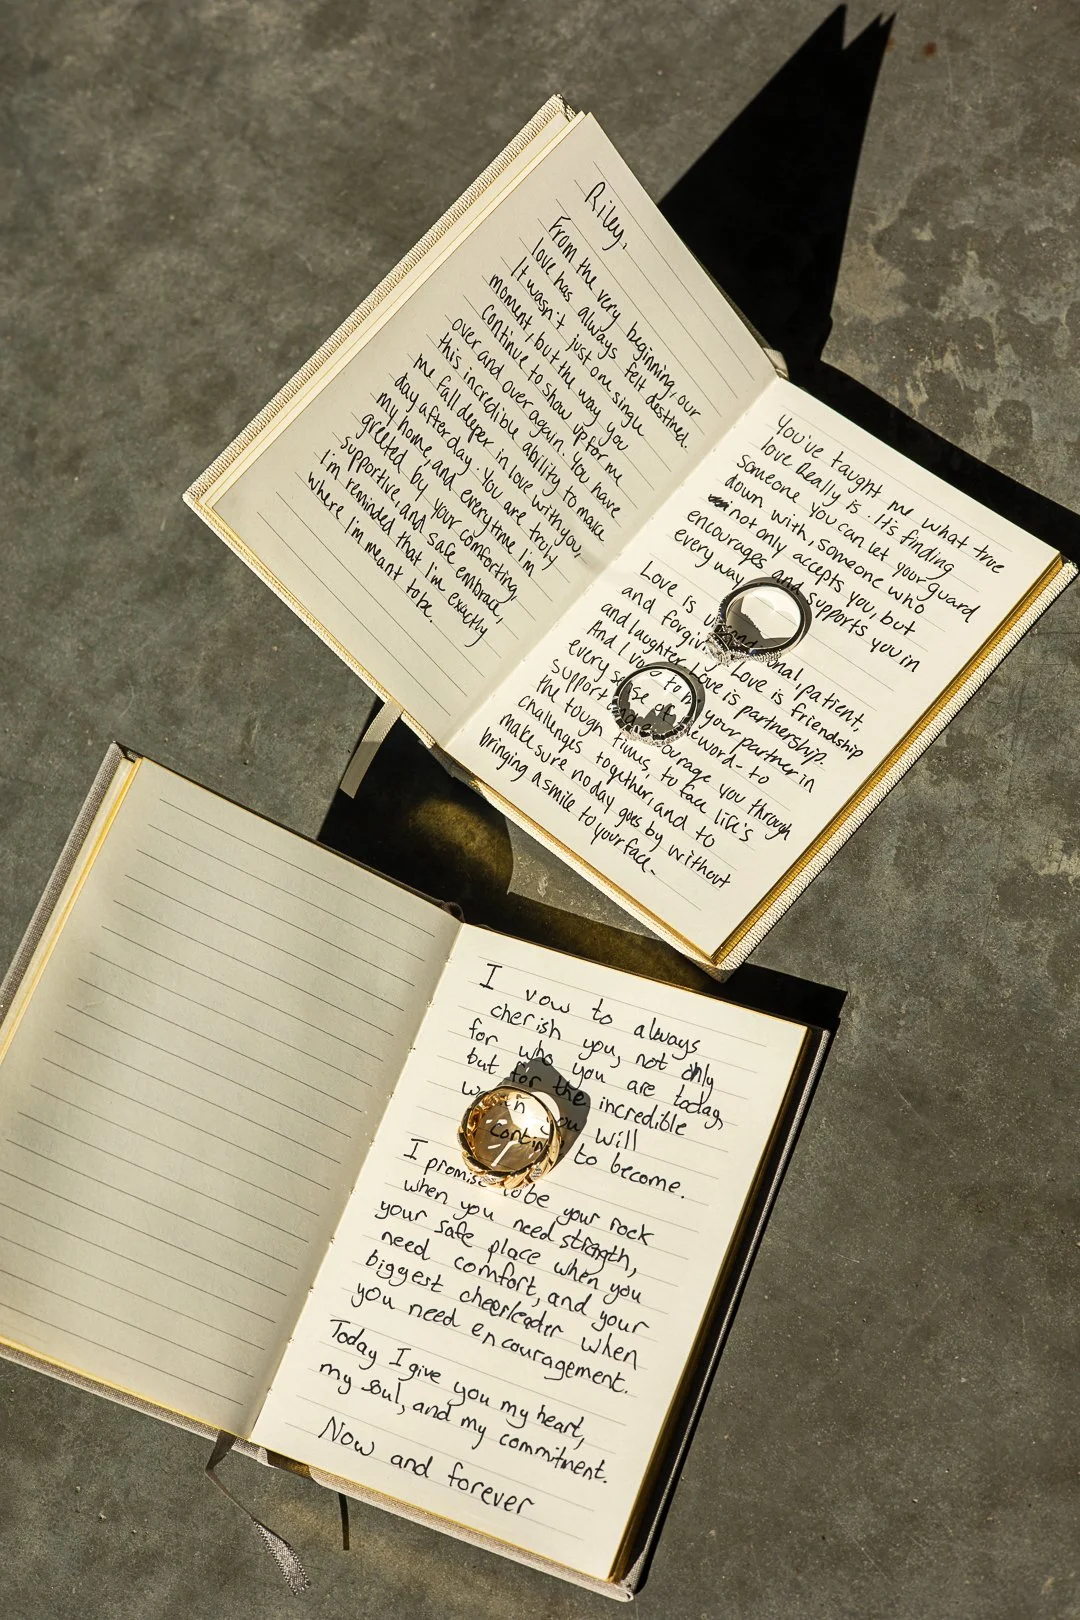 Riley,
From the very beginning, our
love has always felt destined.
It wasn't just one single
moment, but the way you
continue to show up for me
over and over again. You have
this incredible ability to make
me fall deeper in love with you,
day after day. You are truly
my home, and everytime I'm
greeted by your comforting,
supportive, and safe embrace,
I'm reminded that I'm exactly
where I'm meant to be.
You've taught me what true
love really is. It's finding
someone you can let your guard
down with, someone who
not only accepts you, but
encourages and supports you in
every way
Love is patient,
and Love is friendship
and laughter. Love is partnership.
And I to your partner in
every sense of word- to
support you through
the tough times, to face life's
challenges together, and to
make sure no day goes by without
bringing a smile to your face.
I vow to always
cherish you, not only
for who you are today,
but for the incredible
you will
to become.
I promise to be your rock
when you need strength,
your safe place when you
need comfort, and your
biggest cheerleader when
you need encouragement.
Today I give you my heart,
my soul, and my commitment.
Now and forever